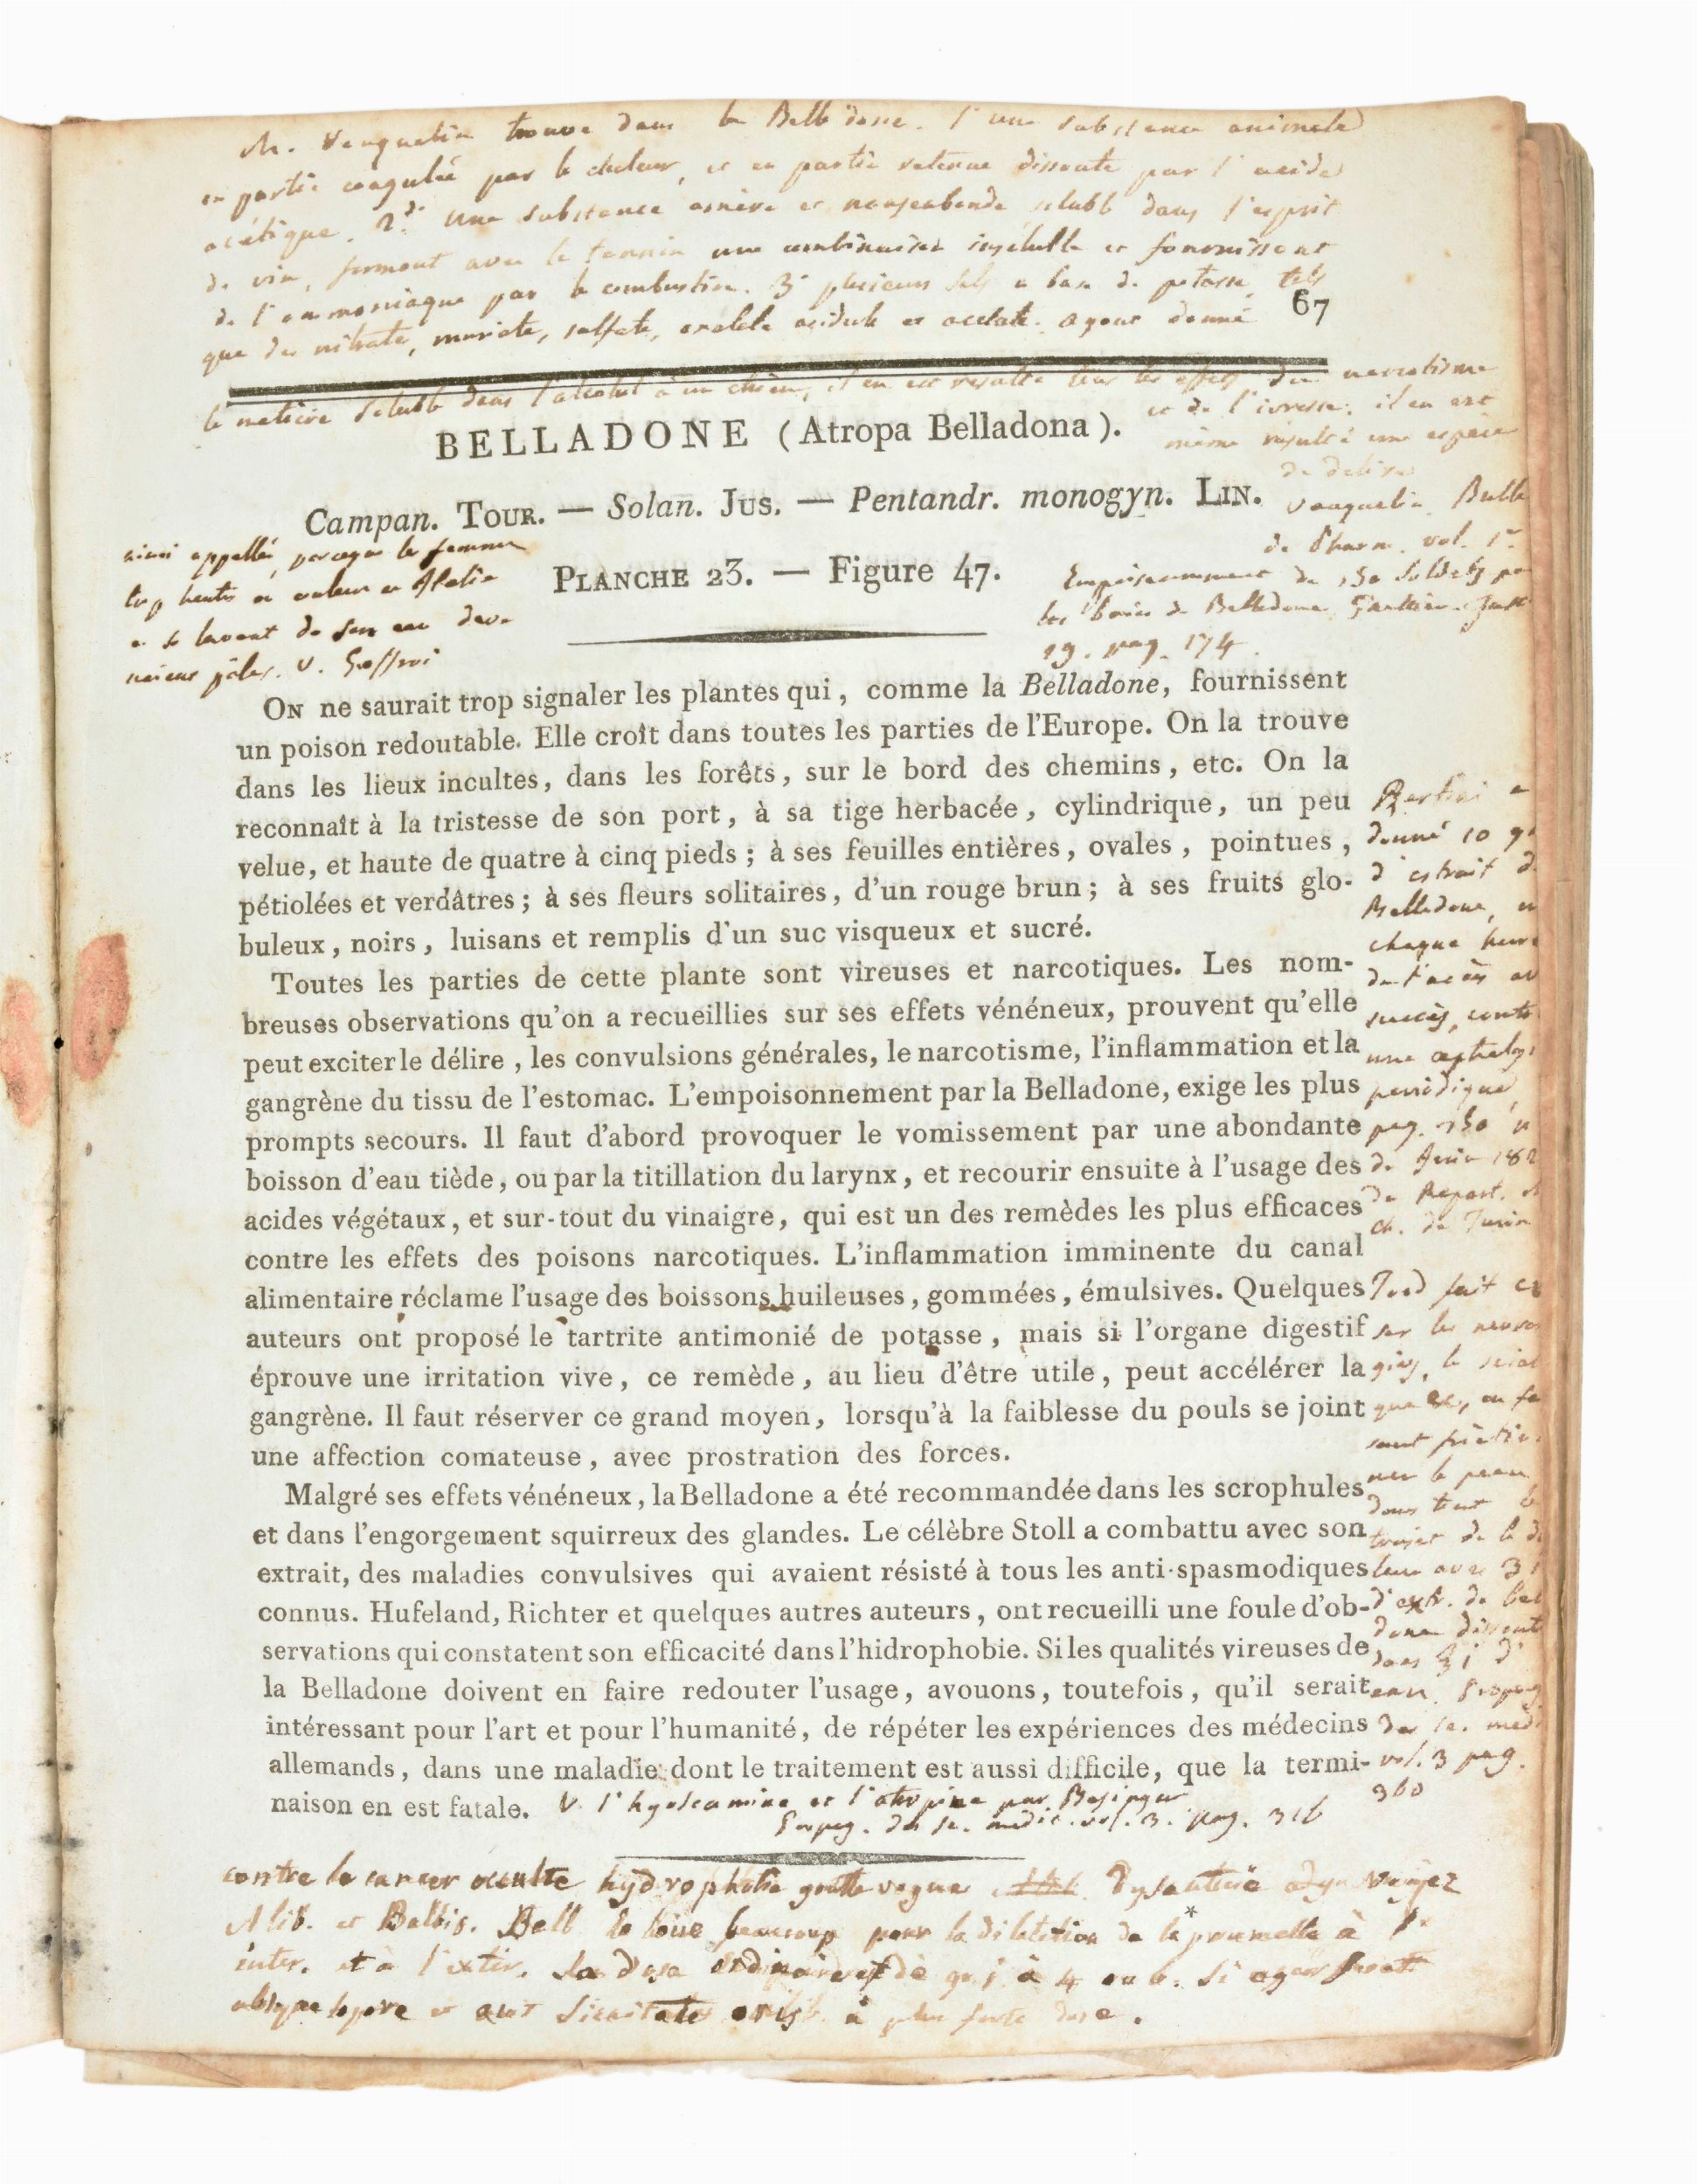 M. Vauquelin trouve dans la Belladone. 1° une substance animale
en partie coagulée par la chaleur, et en partie retenue dissoute par l'acide
acétique. 2.° une substance amère et nauseabonde soluble dans l'esprit
de vin, formant avec le tannin une combinaison insoluble et fournissant
de l'ammoniaque par la combustion. 3° plusieurs sels a base de potasse, tels
que des nitrate, muriate, sulfate, oxalate acidule et acetate. ayant donné
67
la matière soluble dans l'alcohol à un chien, il en est resulté tous les effets du narcotisme
et de l'ivresse; il en est
même resulté une espèce
de delire
Vauquelin Bull
de Pharm. vol. 1.er
BELLADONE (Atropa Belladona).
Campan. TOUR. — Solan. JUS. — Pentandr. monogyn. LIN.
PLANCHE 23. — Figure 47.
ainsi appellée parceque les femmes
trop hautes en couleur en Italie
se lavent de son eau
pâles. V. Geoffroi
Empoisonnement de 150 Soldats par
les baies de Belladone
19. pag. 174.
ON ne saurait trop signaler les plantes qui, comme la Belladone, fournissent
un poison redoutable. Elle croît dans toutes les parties de l'Europe. On la trouve
dans les lieux incultes, dans les forêts, sur le bord des chemins, etc. On la
reconnaît à la tristesse de son port, à sa tige herbacée, cylindrique, un peu
velue, et haute de quatre à cinq pieds; à ses feuilles entières, ovales, pointues,
pétiolées et verdâtres; à ses fleurs solitaires, d'un rouge brun; à ses fruits glo-
buleux, noirs, luisans et remplis d'un suc visqueux et sucré.
Toutes les parties de cette plante sont vireuses et narcotiques. Les nom-
breuses observations qu'on a recueillies sur ses effets vénéneux, prouvent qu'elle
peut exciter le délire, les convulsions générales, le narcotisme, l'inflammation et la
gangrène du tissu de l'estomac. L'empoisonnement par la Belladone, exige les plus
prompts secours. Il faut d'abord provoquer le vomissement par une abondante
boisson d'eau tiède, ou par la titillation du larynx, et recourir ensuite à l'usage des
acides végétaux, et sur-tout du vinaigre, qui est un des remèdes les plus efficaces
contre les effets des poisons narcotiques. L'inflammation imminente du canal
alimentaire réclame l'usage des boissons huileuses, gommées, émulsives. Quelques
auteurs ont proposé le tartrite antimonié de potasse, mais si l'organe digestif
éprouve une irritation vive, ce remède, au lieu d'être utile, peut accélérer la
gangrène. Il faut réserver ce grand moyen, lorsqu'à la faiblesse du pouls se joint
une affection comateuse, avec prostration des forces.
Malgré ses effets vénéneux, la Belladone a été recommandée dans les scrophules
et dans l'engorgement squirreux des glandes. Le célèbre Stoll a combattu avec son
extrait, des maladies convulsives qui avaient résisté à tous les anti-spasmodiques
connus. Hufeland, Richter et quelques autres auteurs, ont recueilli une foule d'ob-
servations qui constatent son efficacité dans l'hidrophobie. Si les qualités vireuses de
la Belladone doivent en faire redouter l'usage, avouons, toutefois, qu'il serait
intéressant pour l'art et pour l'humanité, de répéter les expériences des médecins
allemands, dans une maladie dont le traitement est aussi difficile, que la termi-
naison en est fatale.
donné 10 gr
d'extrait d
Belladone, en
chaque heure
de l'accès av
succès, contr
une cephalgi
periodique,
pag. 150
de Juin 182
du Repert.
ch. de Turin
fait
sur les nevral
gies, la sciat
que &c, en fe
sant friction
ner la peau
dans tout le
trajet de la do
leur avec
d'extr. de bel
done dissout
dans ʒi d'
eau. Propag
des sc. medi
vol. 3 pag.
360
V. l'hyosciamine et l'atropine par
Propag. des sc. médic. vol. 3. pag. 316
contre le cancer occulte hydrophobie goutte vague dysenterie voyez
Alib. et Balbis. Bell la loue beaucoup pour la dilatation de la * prunelle à l'
inter. et à l'exter. Sa dose ordinaire est de gr. j à 4 ou 6.
à plus forte dose.